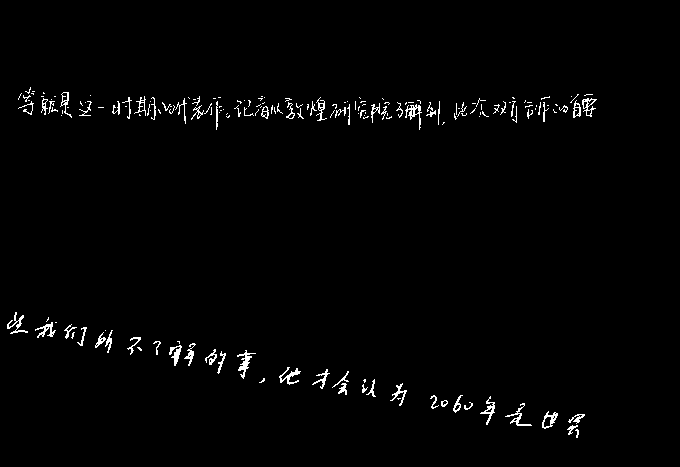 等就是这一时期的代表作。记者从敦煌研究院了解到,此次双方合作的首要
些我们所不了解的事,他才会认为2060年是世界